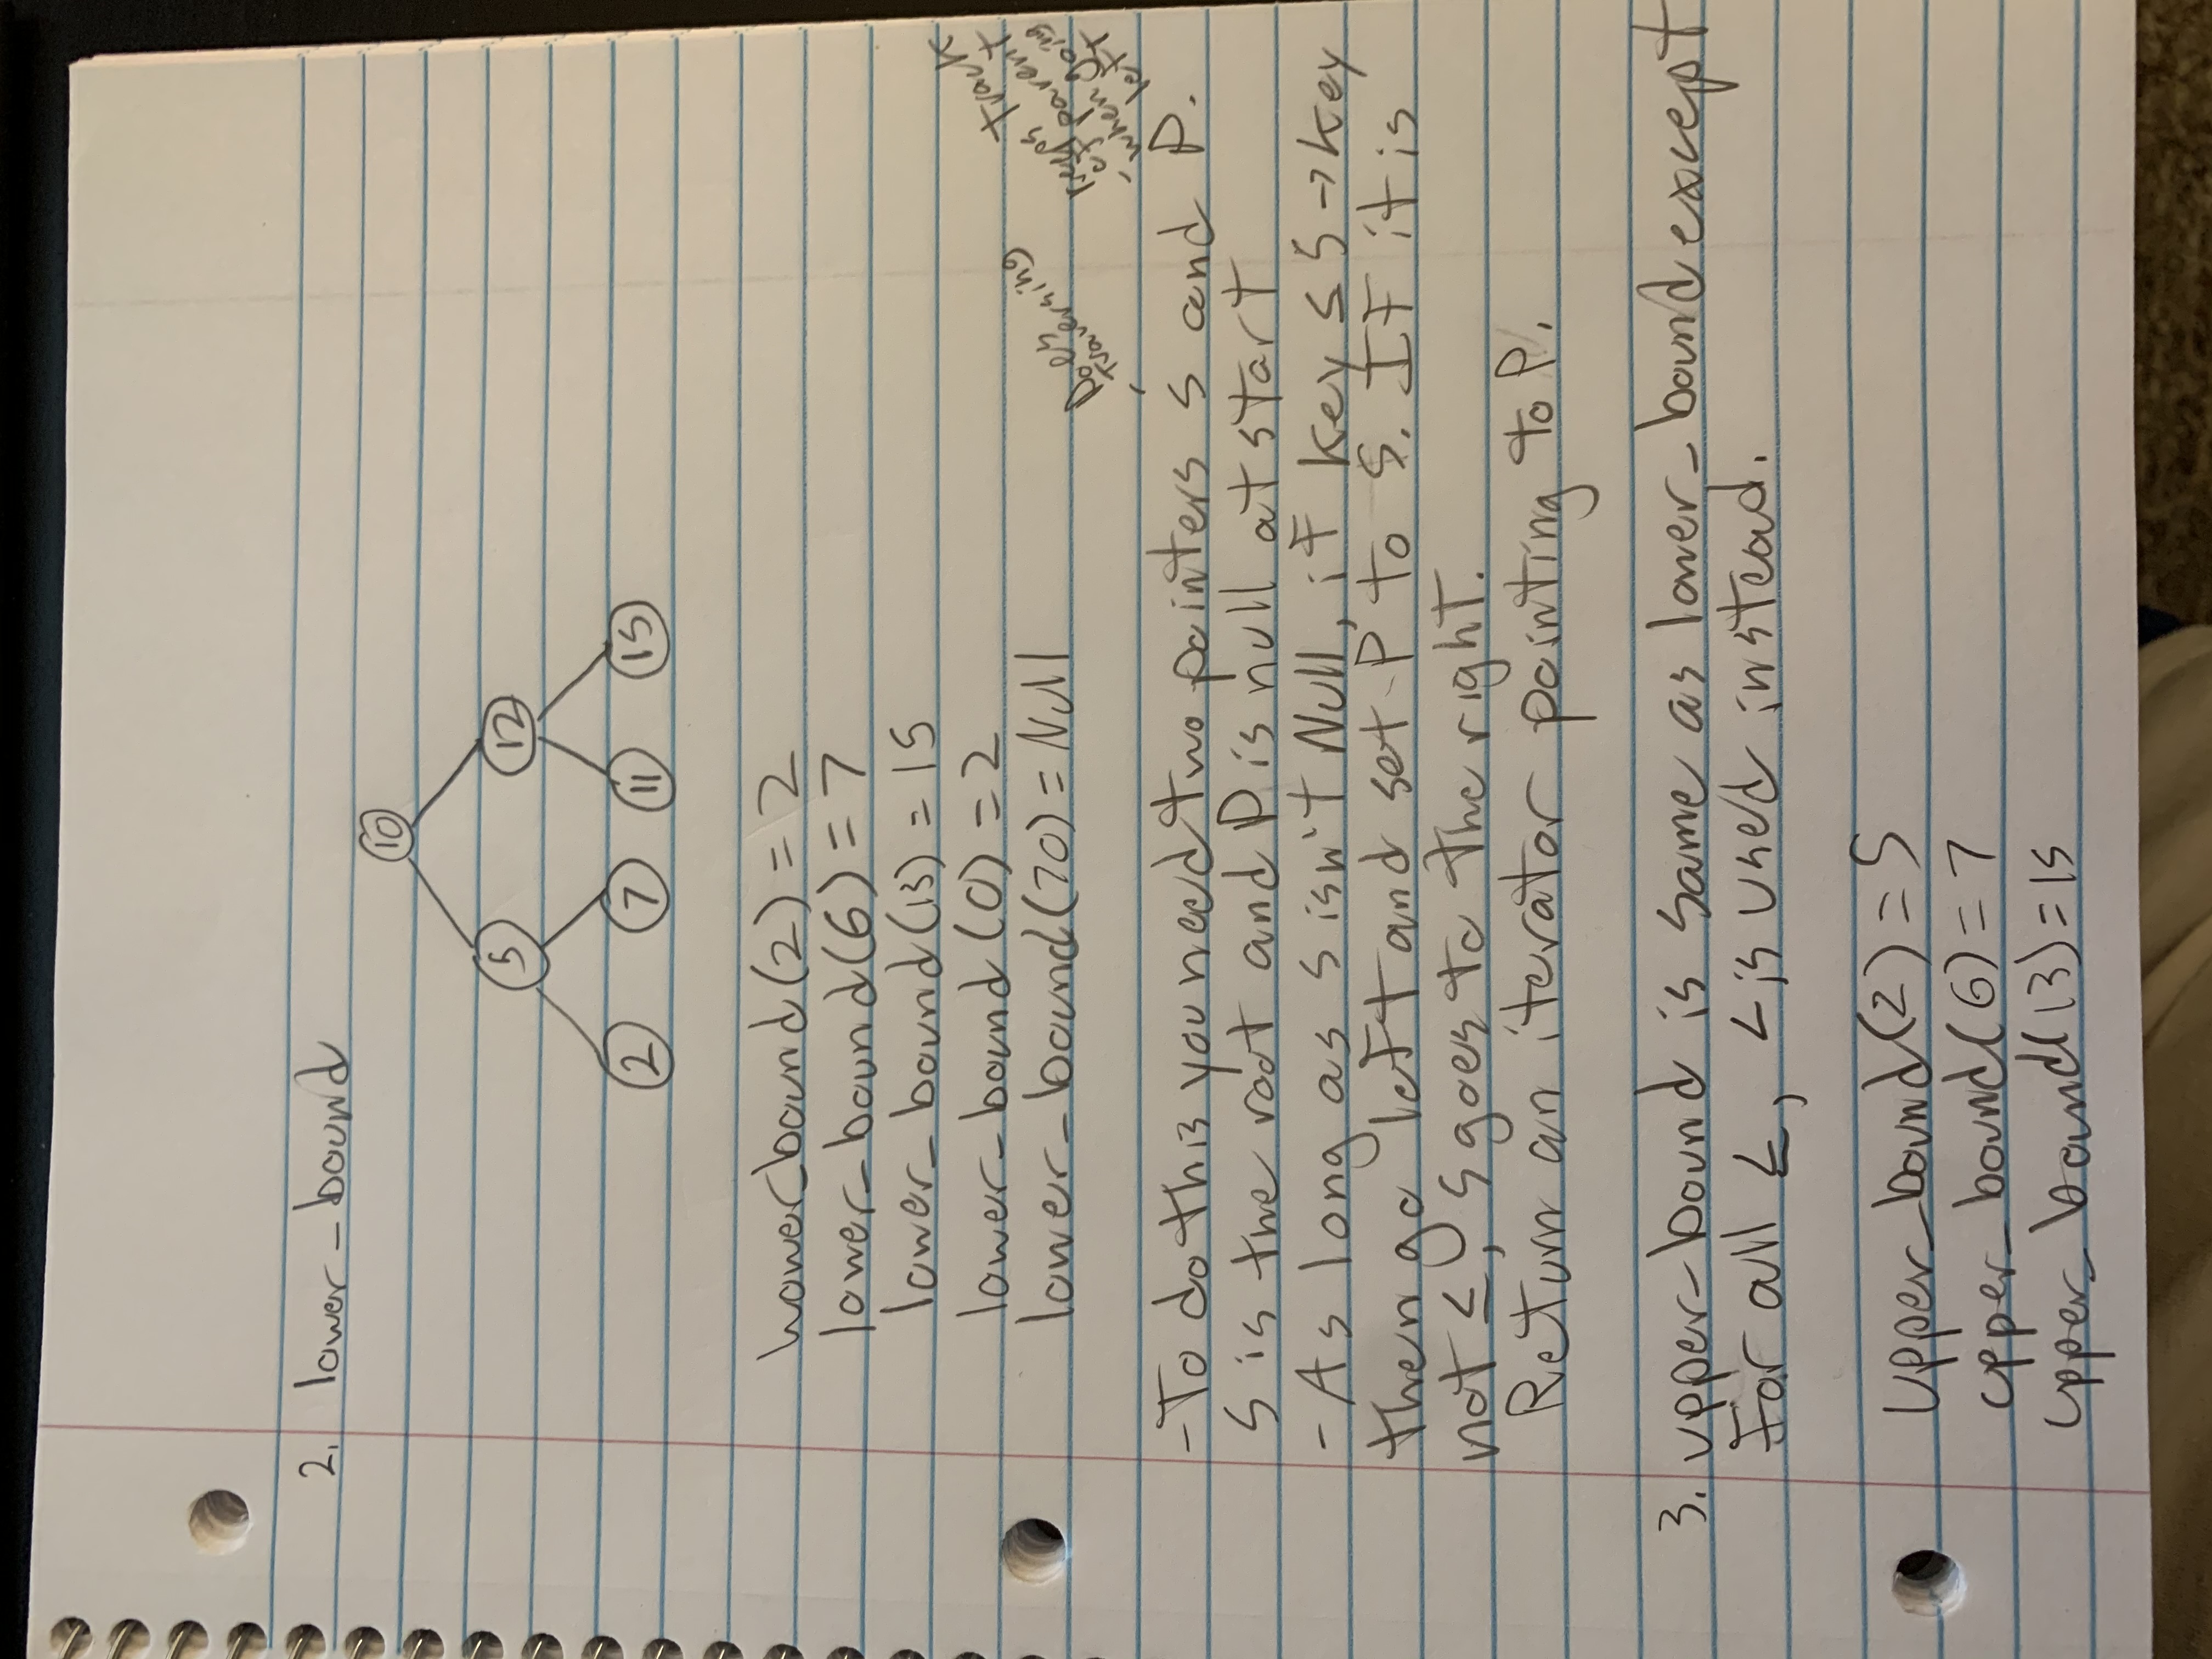 2. lower_bound
10
5 12
2 7 11 15
lower_bound(2) = 2
lower_bound(6) = 7
lower_bound(13) = 15
lower_bound(0) = 2
lower_bound(70) = Null
- Does
traversing
keeps track
of parent
- when going
left
-To do this you need two pointers S and P.
S is the root and P is null at start
- As long as S isn't Null, if key ≤ S→key
then go left and set P to S. If it is
not ≤, S goes to the right.
Return an iterator pointing to P.
3. upper-bound is same as lower_bound except
for all ≤, < is used instead.
Upper_bound(2) = 5
upper_bound(6) = 7
upper_bound(13) = 15